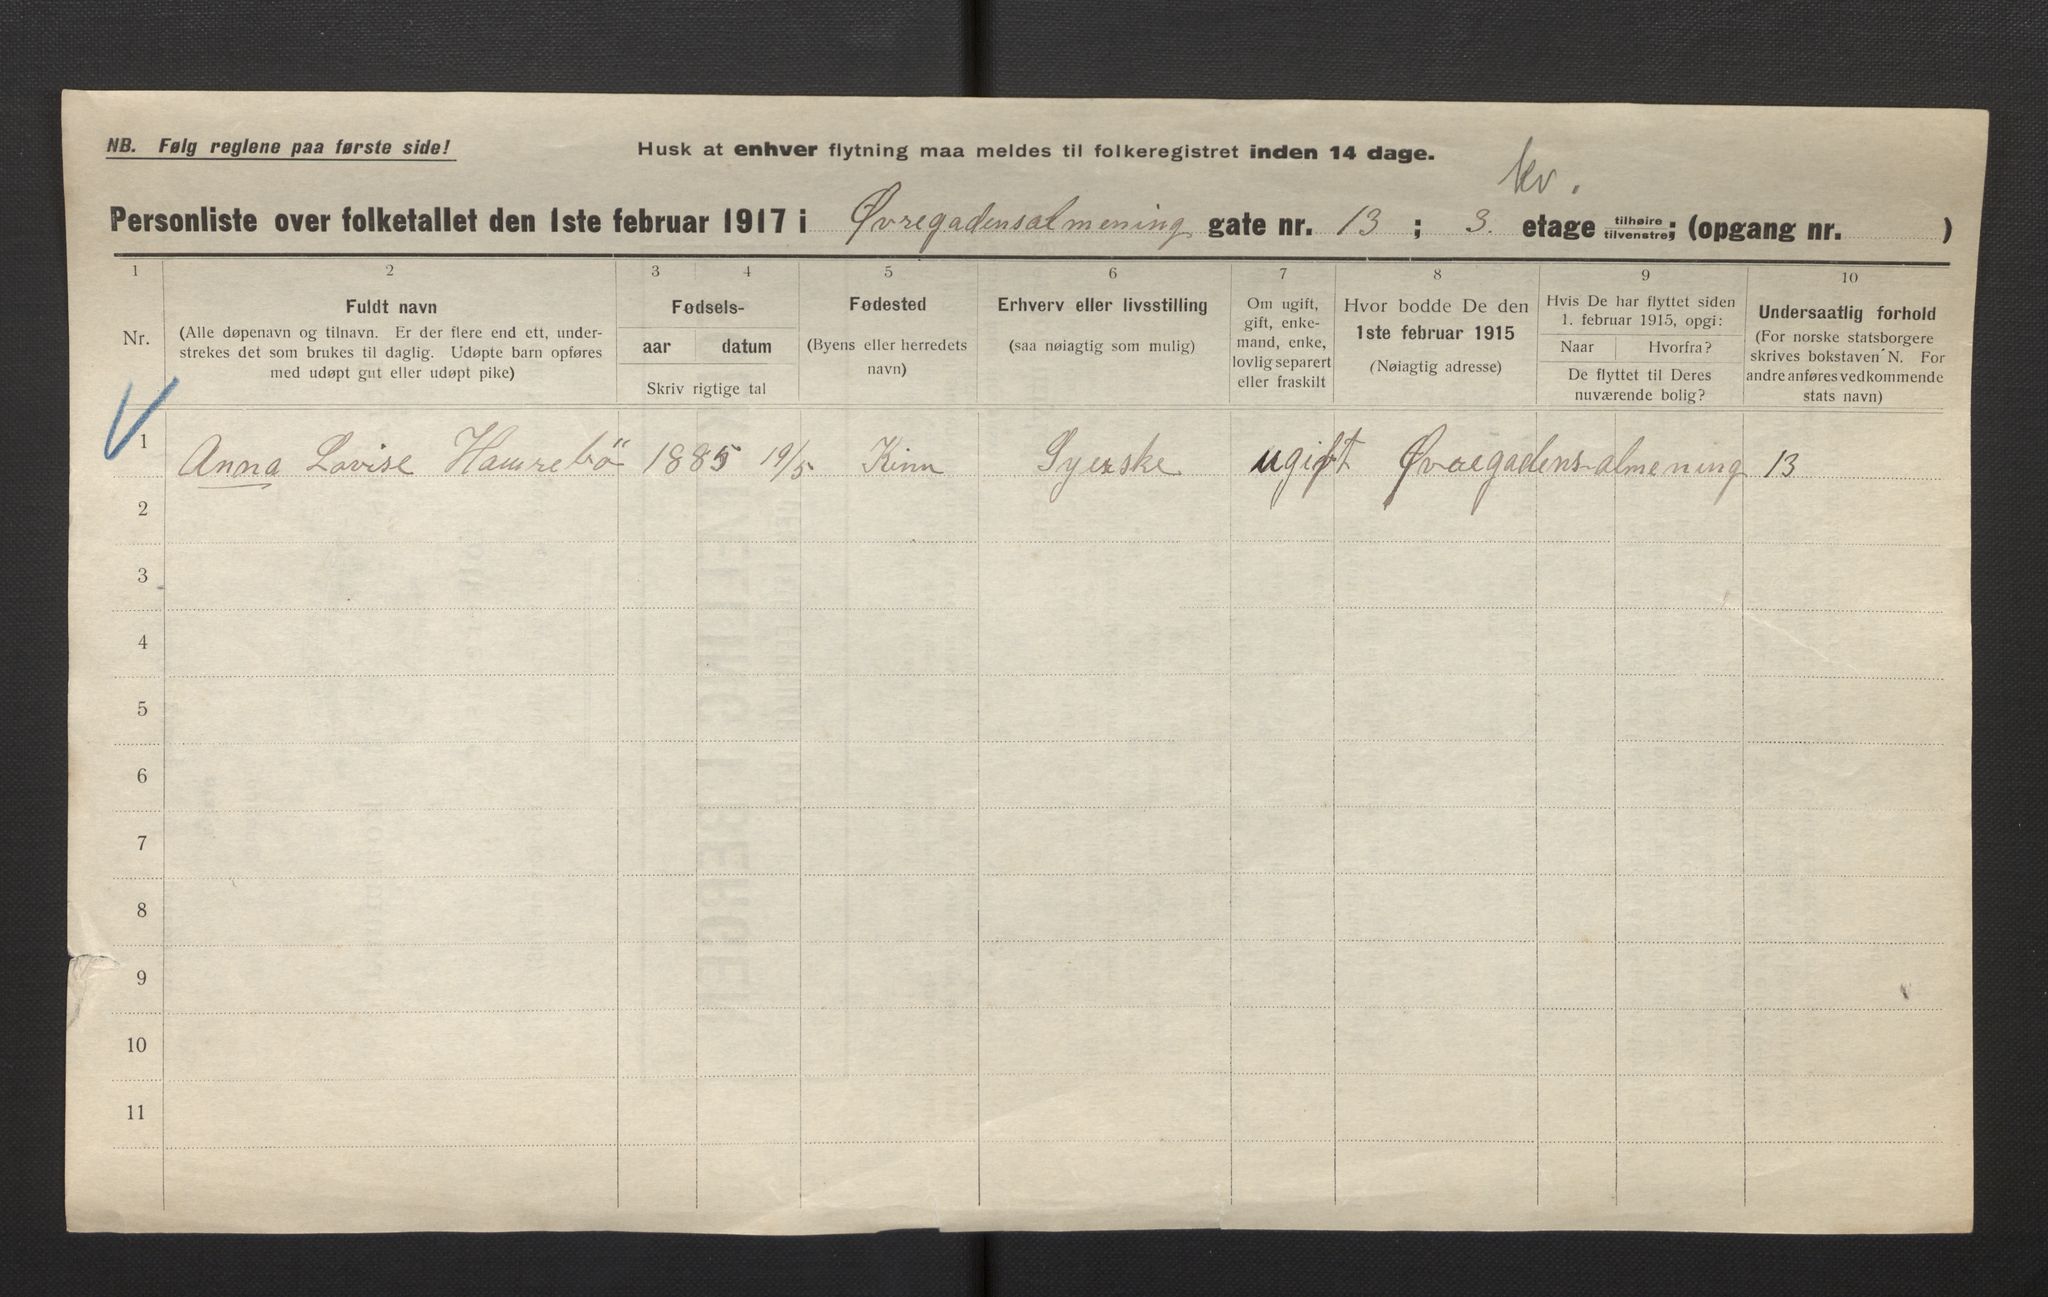 NB. Følg reglene paa første side!
Husk at enhver flytning maa meldes til folkeregistret inden 14 dage.
kv.
Personliste over folketallet den 1ste februar 1917 i Øvregadensalmening gate nr. 13 ; 3. etage tilhøire tilvenstre; (opgang nr. )
1 2 3 4 5 6 7 8 9 10
Nr.
Fuldt navn
(Alle døpenavn og tilnavn. Er der flere end ett, under-
strekes det som brukes til daglig. Udøpte barn opføres
med udøpt gut eller udøpt pike)
Fødsels-
aar datum
Skriv rigtige tal
Fødested
(Byens eller herredets
navn)
Erhverv eller livsstilling
(saa nøiagtig som mulig)
Om ugift,
gift, enke-
mand, enke,
lovlig separert
eller fraskilt
Hvor bodde De den
1ste februar 1915
(Nøiagtig adresse)
Hvis De har flyttet siden
1. februar 1915, opgi:
Naar Hvorfra?
De flyttet til Deres
nuværende bolig?
Undersaatlig forhold
(For norske statsborgere
skrives bokstaven N. For
andre anføres vedkommende
stats navn)
1 Anna Lovise Hamrebö 1885 19/5 Kinn Syerske ugift Øvregadens-almening 13
2
3
4
5
6
7
8
9
10
11